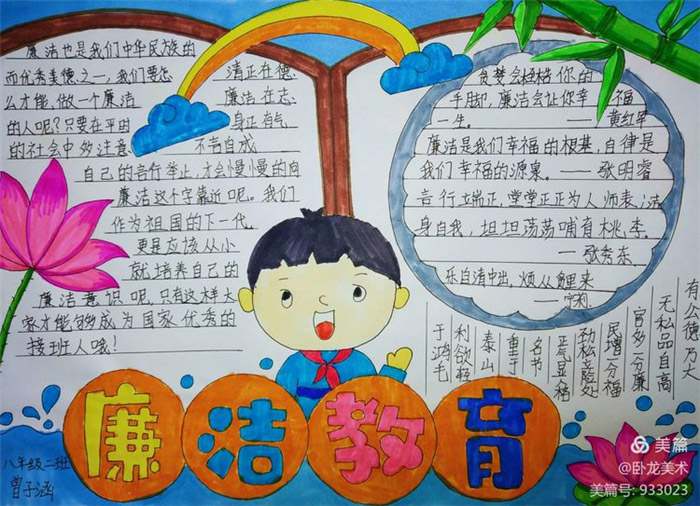 廉洁也是我们中华民族的
而优秀美德之一,我们要怎
么才能,做一个廉洁
的人呢?只要在平时
的社会中多注意
自己的言行举止,才会慢慢的向
廉洁这个字靠近呢。我们
作为祖国的下一代
更是应该从小
就培养自己的
廉洁意识呢,只有这样大
家才能够成为国家优秀的
接班人哦!
清正在德
廉洁在志
身正有气
不言自威
贪婪会桎梏你的
手脚,廉洁会让你幸福
一生。——黄红军
廉洁是我们幸福的根基,自律是
我们幸福的源泉。——张明睿
言行端正,堂堂正正为人师表;洁
身自我,坦坦荡荡哺育桃李
——张秀东
乐自清中出,烦从贪里来
有公德乃大
无私品自高
官多一分廉
民增一分福
劲松立险处
正气显
名书
重于
泰山
利欲轻
于鸿毛
廉洁教育
八年级二班
曾子涵
美篇
@卧龙美术
美篇号: 933023